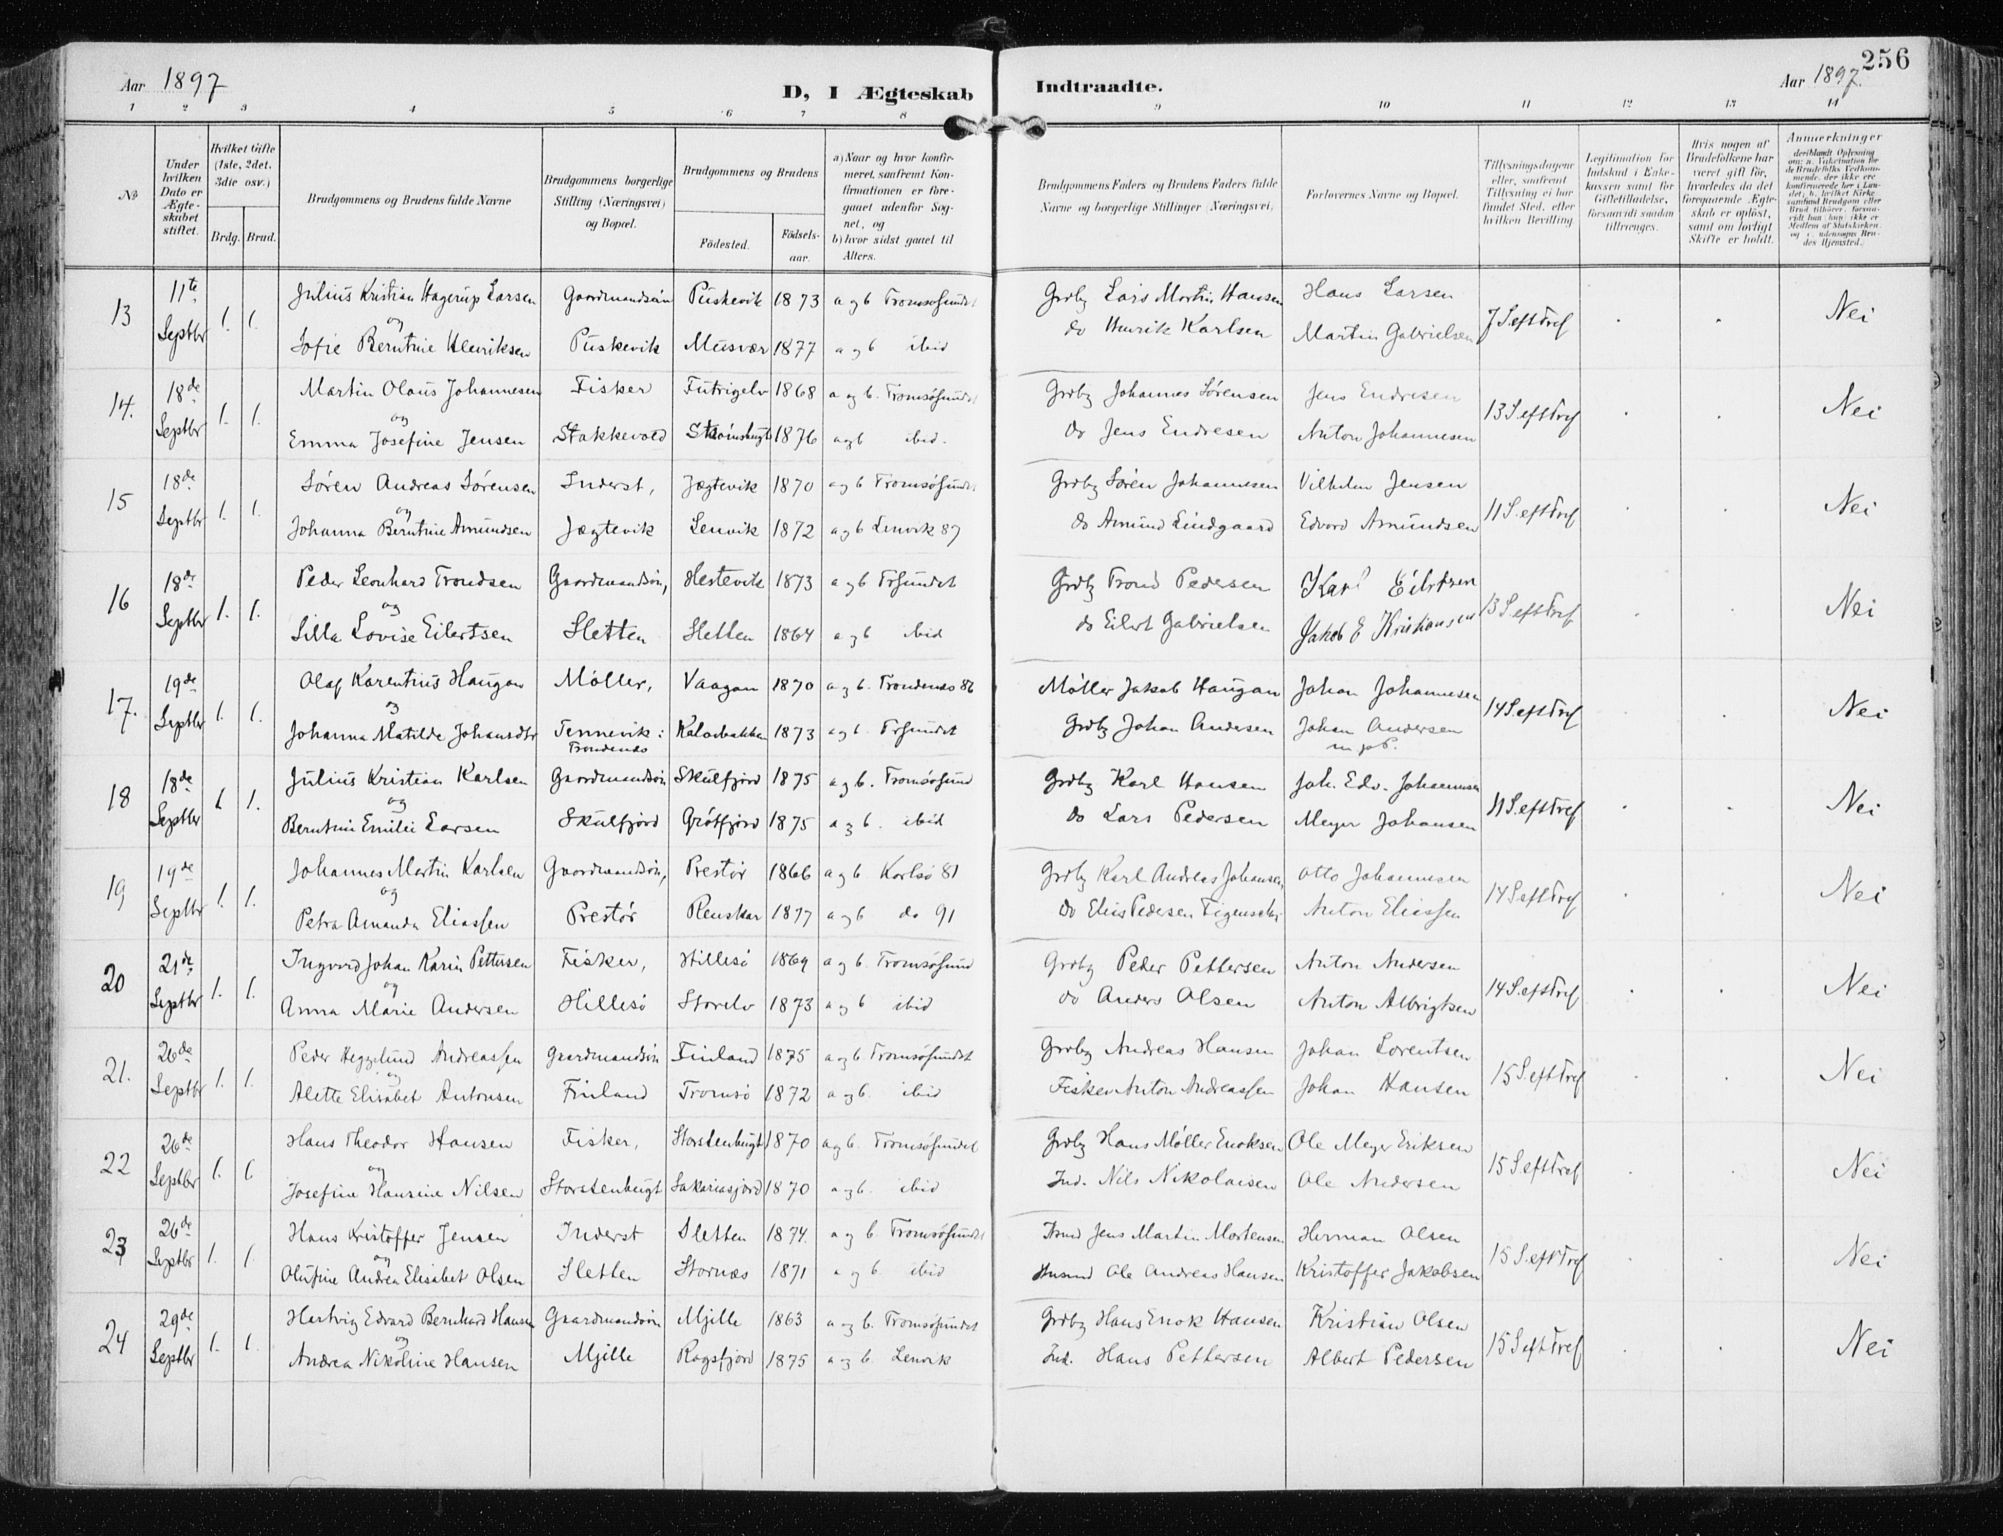 256
Aar 1897 D, I Ægteskab Indtraadte. Aar 1897.
1 2 3 4 5 6 7 8 9 10 11 12 13 14
No
Under hvilken Dato er Ægteskabet stiftet.
Hvilket Gifte (1ste, 2det, 3die osv.)
Brdg. Brud.
Brudgommens og Brudens fulde Navne
Brudgommens borgerlige Stilling (Næringsvei) og Bopæl.
Brudgommens og Brudens
Fødested. Fødselsaar.
a) Naar og hvor konfirmeret, saafremt Konfirmationen er foregaaet udenfor Sognet, og
b) hvor sidst gaaet til Alters.
Brudgommens Faders og Brudens Faders fulde Navne og borgerlige Stillinger (Næringsvei)
Forlovernes Navne og Bopæl.
Tillysningsdagene eller, saafremt Tillysning ei har fundet Sted, efter hvilken Bevilling
Legitimation for Indskud i Enkekassen samt for Giftetilladelse, forsaavidt saadan tiltrænges.
Hvis nogen af Brudefolkene har været gift før, hvorledes da det foregaaende Ægteskab er opløst, samt om lovligt Skifte er holdt.
Anmerkninger
13 11te Septbr 1. 1. Julius Kristian Hagerup Larsen Gaardmandsøn Puskevik 1873 a og b Tromsøsundet Grdbr Lars Martin Hansen Hans Larsen 7 S eft Tref Nei
og
Sofie Berntine Henriksen Puskevik Musvær 1877 a og b ibid do Henrik Karlsen Martin Gabrielsen
14. 18de Septbr 1. 1. Martin Olaus Johannesen Fisker Futrigelv 1868 a og b. Tromsøsundet Grdbr Johannes Sørensen Jens Endresen 13 S eft Tref Nei
og
Emma Josefine Jensen Stakkevold Strømsbugt 1876 a og b ibid. do Jens Endresen Anton Johannesen
15 18de Septbr 1. 1. Søren Andreas Sørensen Inderst, Jægtevik 1870 a og b Tromsøsundet Grdbr Søren Johannesen Vilhelm Jensen 11 S. eft Tref Nei
og
Johanna Berntine Amundsen Jægtevik Lenvik 1872 a og b Lenvik 87 do Amund Lindgaard Edvard Amundsen
16 18de Septbr 1. 1. Peder Leonhard Trondsen Gaardmandsøn, Hestevik 1873 a og b Trsundet Grdbr Trond Pedersen Karl Eilertsen 13 S eft Tref Nei
og
Silla Lovise Eilertsen Sletten Sletten 1864 a og b ibid do Eilert Gabrielsen Jakob E Kristiansen
17. 19de Septbr 1. 1. Olaf Karentius Haugan Møller, Vaagan 1870 a og b. Trondenæs 86 Møller Jakob Haugan Johan Johannesen 14 S eft Tref Nei
og
Johanna Matilde Johansdtr Tennevik i Trondenæs Kalvebakken 1873 a og b. Trsundet Grdbr Johan Andersen Johan Andersen
m. p. P.
18 18de Septbr 1 1. Julius Kristian Karlsen Gaardmandsøn Skulfjord 1875 a og b. Tromsøsund Grdbr Karl Hansen Joh. Edv. Johannesen 11 S. eft Tref Nei
og
Berntine Emilie Larsen Skulfjord Grøtfjord 1875 a og b. ibid do Lars Pedersen Meyer Johansen
19 19de Septbr 1. 1. Johannes Martin Karlsen Gaardmandsøn, Prestør 1866 a og b Karlsø 81 Grdbr Karl Andreas Johansen Otto Johannesen 14 S eft Tref Nei
og
Petra Amanda Eliassen Prestør Renskar 1877 a og b do 91 do Elias Pedersen Figenschau Anton Eliassen
20 21de Septbr 1. 1. Ingvard Johan Karin Pettersen Fisker, Hillesø 1869 a og b. Tromsøsund Grdbr Peder Pettersen Anton Andersen 14 S eft Tref Nei
og
Anna Marie Andersen Hillesø Storelv 1873 a og b ibid do Anders Olsen Anton Albrigtsen
21. 26de Septbr 1. 1. Peder Heggelund Andreassen Gaardmandsøn Finland 1875 a og b Tromsøsundet Grdbr Andreas Hansen Johan Lorentsen 15 S eft Tref Nei
og
Alette Elisabet Antonsen Finland Tromsø 1872 a og b. ibid Fisker Anton Andreassen Johan Hansen
22 26de Septbr 1. 1 Hans Theodor Hansen Fisker, Storstenbugt 1870 a og b. Tromsøsundet Grdbr Hans Møller Enoksen Ole Meyer Eriksen 15 S eft Tref Nei
og
Josefine Hansine Nilsen Storstenbugt Sakariasjord 1870 a og b. ibid Ind. Nils Nikolaisen Ole Andersen
23 26de Septbr 1. 1. Hans Kristoffer Jensen Inderst Sletten 1874. a og b Tromsøsundet Husmd Jens Martin Mortensen Herman Olsen 15 S. eft Tref Nei
og
Olufine Andrea Elisabet Olsen Sletten Stornæs 1871 a og b. ibid Husmd Ole Andreas Hansen Kristoffer Jakobsen
24 29de Septbr 1. 1. Hartvig Edvard Bernhard Hansen Gaardmandsøn Mjelle 1863 a og b. Tromsøsundet Grdbr Hans Enok Hansen Kristian Olsen 15 S eft Tref Nei
og
Andrea Nikoline Hansen Mjelle Rogsfjord 1875 a og b. Lenvik Ind. Hans Pettersen Albert Pedersen